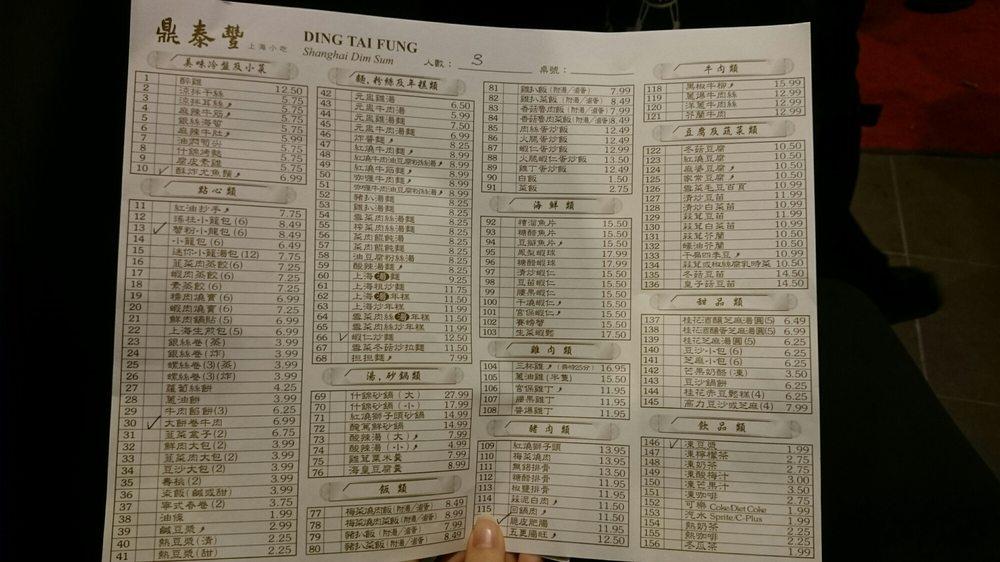 鼎泰豐 上海小吃
DING TAI FUNG
Shanghai Dim Sum
人數： 3 桌號：
美味冷盤及小菜
1 醉雞 12.50
2 涼拌干絲 5.75
3 涼拌耳絲 5.75
4 麻辣牛筋 5.75
5 銀絲海蜇 5.75
6 麻辣牛肚 5.99
7 油燜筍尖 5.75
8 什錦烤麩 5.75
9 腐皮素雞 5.75
10 ✓ 酥炸尤魚鬚 6.99
點心類
11 紅油抄手 7.75
12 瑤柱小籠包 (6) 8.49
13 ✓ 蟹粉小龍包 (6) 8.49
14 小龍包 (6) 6.49
15 迷你小籠湯包 (12) 7.75
16 韮菜肉蒸餃 (6) 7.25
17 蝦肉蒸餃 (6) 7.25
18 素蒸餃 (6) 7.25
19 糯肉燒賣 (6) 6.99
20 蝦肉燒賣 (6) 7.25
21 鮮肉鍋貼 (5) 5.75
22 上海生煎包 (5) 6.99
23 銀絲卷 (蒸) 3.99
24 銀絲卷 (炸) 3.99
25 螺絲卷 (3) (蒸) 3.99
26 螺絲卷 (3) (炸) 3.99
27 蘿蔔絲餅 4.25
28 蔥油餅 3.99
29 牛肉餡餅 (3) 6.25
30 ✓ 大餅卷牛肉 6.99
31 韮菜盒子 (2) 6.75
32 鮮肉大包 (2) 3.99
33 菜肉大包 (2) 3.99
34 豆沙大包 (2) 3.99
35 壽桃 (2) 3.99
36 粢飯 (鹹或甜) 3.99
37 寧式春卷 (2) 3.75
38 油條 1.99
39 鹹豆漿 2.99
40 熱豆漿 (清) 2.25
41 熱豆漿 (甜) 2.25
麵, 粉絲及年糕類
42 元盅雞湯 6.50
43 元盅牛肉湯
44 元盅雞湯麵 6.50
45 元盅牛肉麵 7.50
46 炸醬麵 6.99
47 紅燒牛肉麵 8.25
48 紅燒牛肉油豆腐粉絲湯 8.99
49 紅燒牛筋麵 8.25
50 咖喱牛肉麵 8.25
51 咖喱牛肉油豆腐粉絲湯 8.99
52 豬扒湯麵 8.25
53 雞扒湯麵 8.25
54 雪菜肉絲湯麵 8.25
55 榨菜肉絲湯麵 8.25
56 菜肉餛飩湯 8.25
57 菜肉餛飩麵 8.25
58 油豆腐粉絲湯 8.25
59 酸辣湯麵 8.25
60 上海湯麵 9.25
61 上海粗炒麵 11.50
62 上海湯年糕 11.50
63 上海炒年糕 11.99
64 雪菜肉絲湯年糕 11.99
65 雪菜肉絲炒年糕 11.99
66 ✓ 蝦仁炒麵 11.50
67 雪菜冬菇炒拉麵 11.50
68 担担麵 7.99
湯, 砂鍋類
69 什錦砂鍋 (大) 27.99
70 什錦砂鍋 (小) 17.99
71 紅燒獅子頭砂鍋 14.99
72 醃篤鮮砂鍋 14.99
73 酸辣湯 (大) 7.99
74 酸辣湯 (小) 4.99
75 雞茸粟米羹 7.99
76 海皇豆腐羹 8.99
飯類
77 梅菜燒肉飯 (附湯／滷蛋) 8.49
78 梅菜燒肉菜飯 (附湯／滷蛋) 8.99
79 豬扒飯 (附湯／滷蛋) 7.99
80 豬扒菜飯 (附湯／滷蛋) 8.49
81 雞扒飯 (附湯／滷蛋) 7.99
82 雞扒菜飯 (附湯／滷蛋) 8.49
83 香菇魯肉飯 (附湯／滷蛋) 7.99
84 香菇魯肉菜飯 (附湯／滷蛋) 8.49
85 肉絲蛋炒飯 12.49
86 火腿蛋炒飯 12.49
87 蝦仁蛋炒飯 12.49
88 火腿蝦仁蛋炒飯 13.50
89 雞丁蛋炒飯 12.49
90 白飯 1.50
91 菜飯 2.75
海鮮類
92 糟溜魚片 15.50
93 糖醋魚片 15.50
94 豆瓣魚片 15.50
95 鳳梨蝦球 17.99
96 糖醋蝦球 17.99
97 清炒蝦仁 15.50
98 豆苗蝦仁 15.50
99 腰果蝦仁 15.50
100 干燒蝦仁 15.50
101 宮保蝦仁 15.50
102 賽螃蟹 15.50
103 生菜蝦鬆 17.50
雞肉類
104 三杯雞 (費時25分) 16.95
105 蔥油雞 (半隻) 15.50
106 宮保雞丁 11.95
107 腰果雞丁 11.95
108 醬爆雞丁 11.95
豬肉類
109 紅燒獅子頭 13.95
110 梅菜燒肉 13.95
111 無錫排骨 13.50
112 糖醋排骨 11.95
113 椒鹽排骨 11.95
114 蒜泥白肉 11.50
115 回鍋肉 11.50
✓ 脆皮肥腸 11.95
五更腸旺 12.50
牛肉類
118 黑椒牛柳 15.99
119 蔥爆牛肉絲 11.95
120 洋蔥牛肉絲 12.95
121 芥蘭牛肉 12.95
豆腐及蔬菜類
122 冬菇豆腐 10.50
123 紅燒豆腐 10.50
124 麻婆豆腐 10.50
125 家常豆腐 10.50
126 雪菜毛豆百頁 10.99
127 清炒豆苗 11.99
128 清炒白菜苗 10.50
129 蒜茸豆苗 11.99
130 蒜茸白菜苗 10.50
131 蒜茸芥蘭 10.50
132 蠔油芥蘭 10.50
133 干扁四季豆 10.99
134 蒜茸或椒絲腐乳時菜 10.50
135 冬菇豆苗 14.50
136 皇子菇豆苗 14.50
甜品類
137 桂花酒釀芝麻湯圓(5) 6.49
138 桂花酒釀蛋芝麻湯圓(5) 6.99
139 桂花芝麻湯圓(5) 6.25
140 豆沙小包 (6) 6.25
141 芝麻小包 (6) 6.25
142 芒果奶酪 (凍) 3.50
143 豆沙鍋餅 6.25
144 桂花赤豆鬆糕 (4) 6.25
145 高力豆沙或芝麻 (4) 7.99
飲品類
146 ✓ 凍豆漿 1.99
147 凍檸檬茶 2.75
148 凍奶茶 2.75
149 凍酸梅汁 3.00
150 凍芒果汁 3.50
151 凍咖啡 2.75
152 可樂 Coke/Diet Coke 1.99
153 汽水 Sprite/C-Plus 1.99
154 熱奶茶 2.25
155 熱咖啡 2.25
156 冬瓜茶 1.99